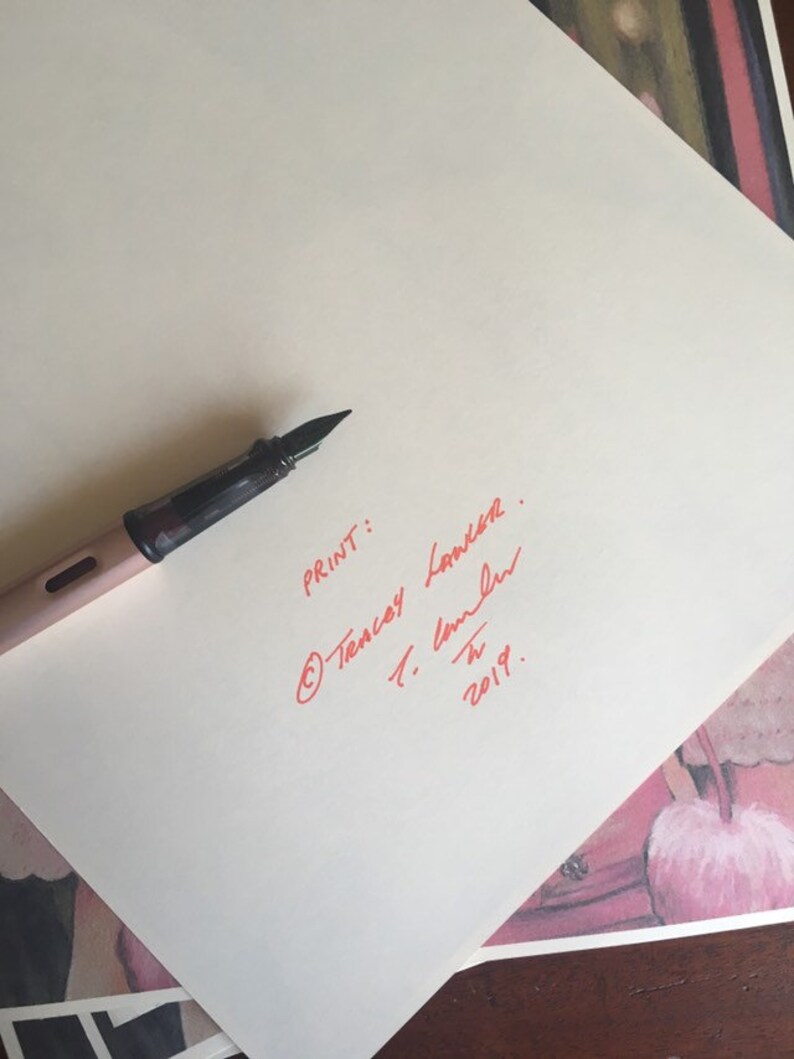 PRINT:
© TRACEY LAWLER.
T. Lawler
2019.